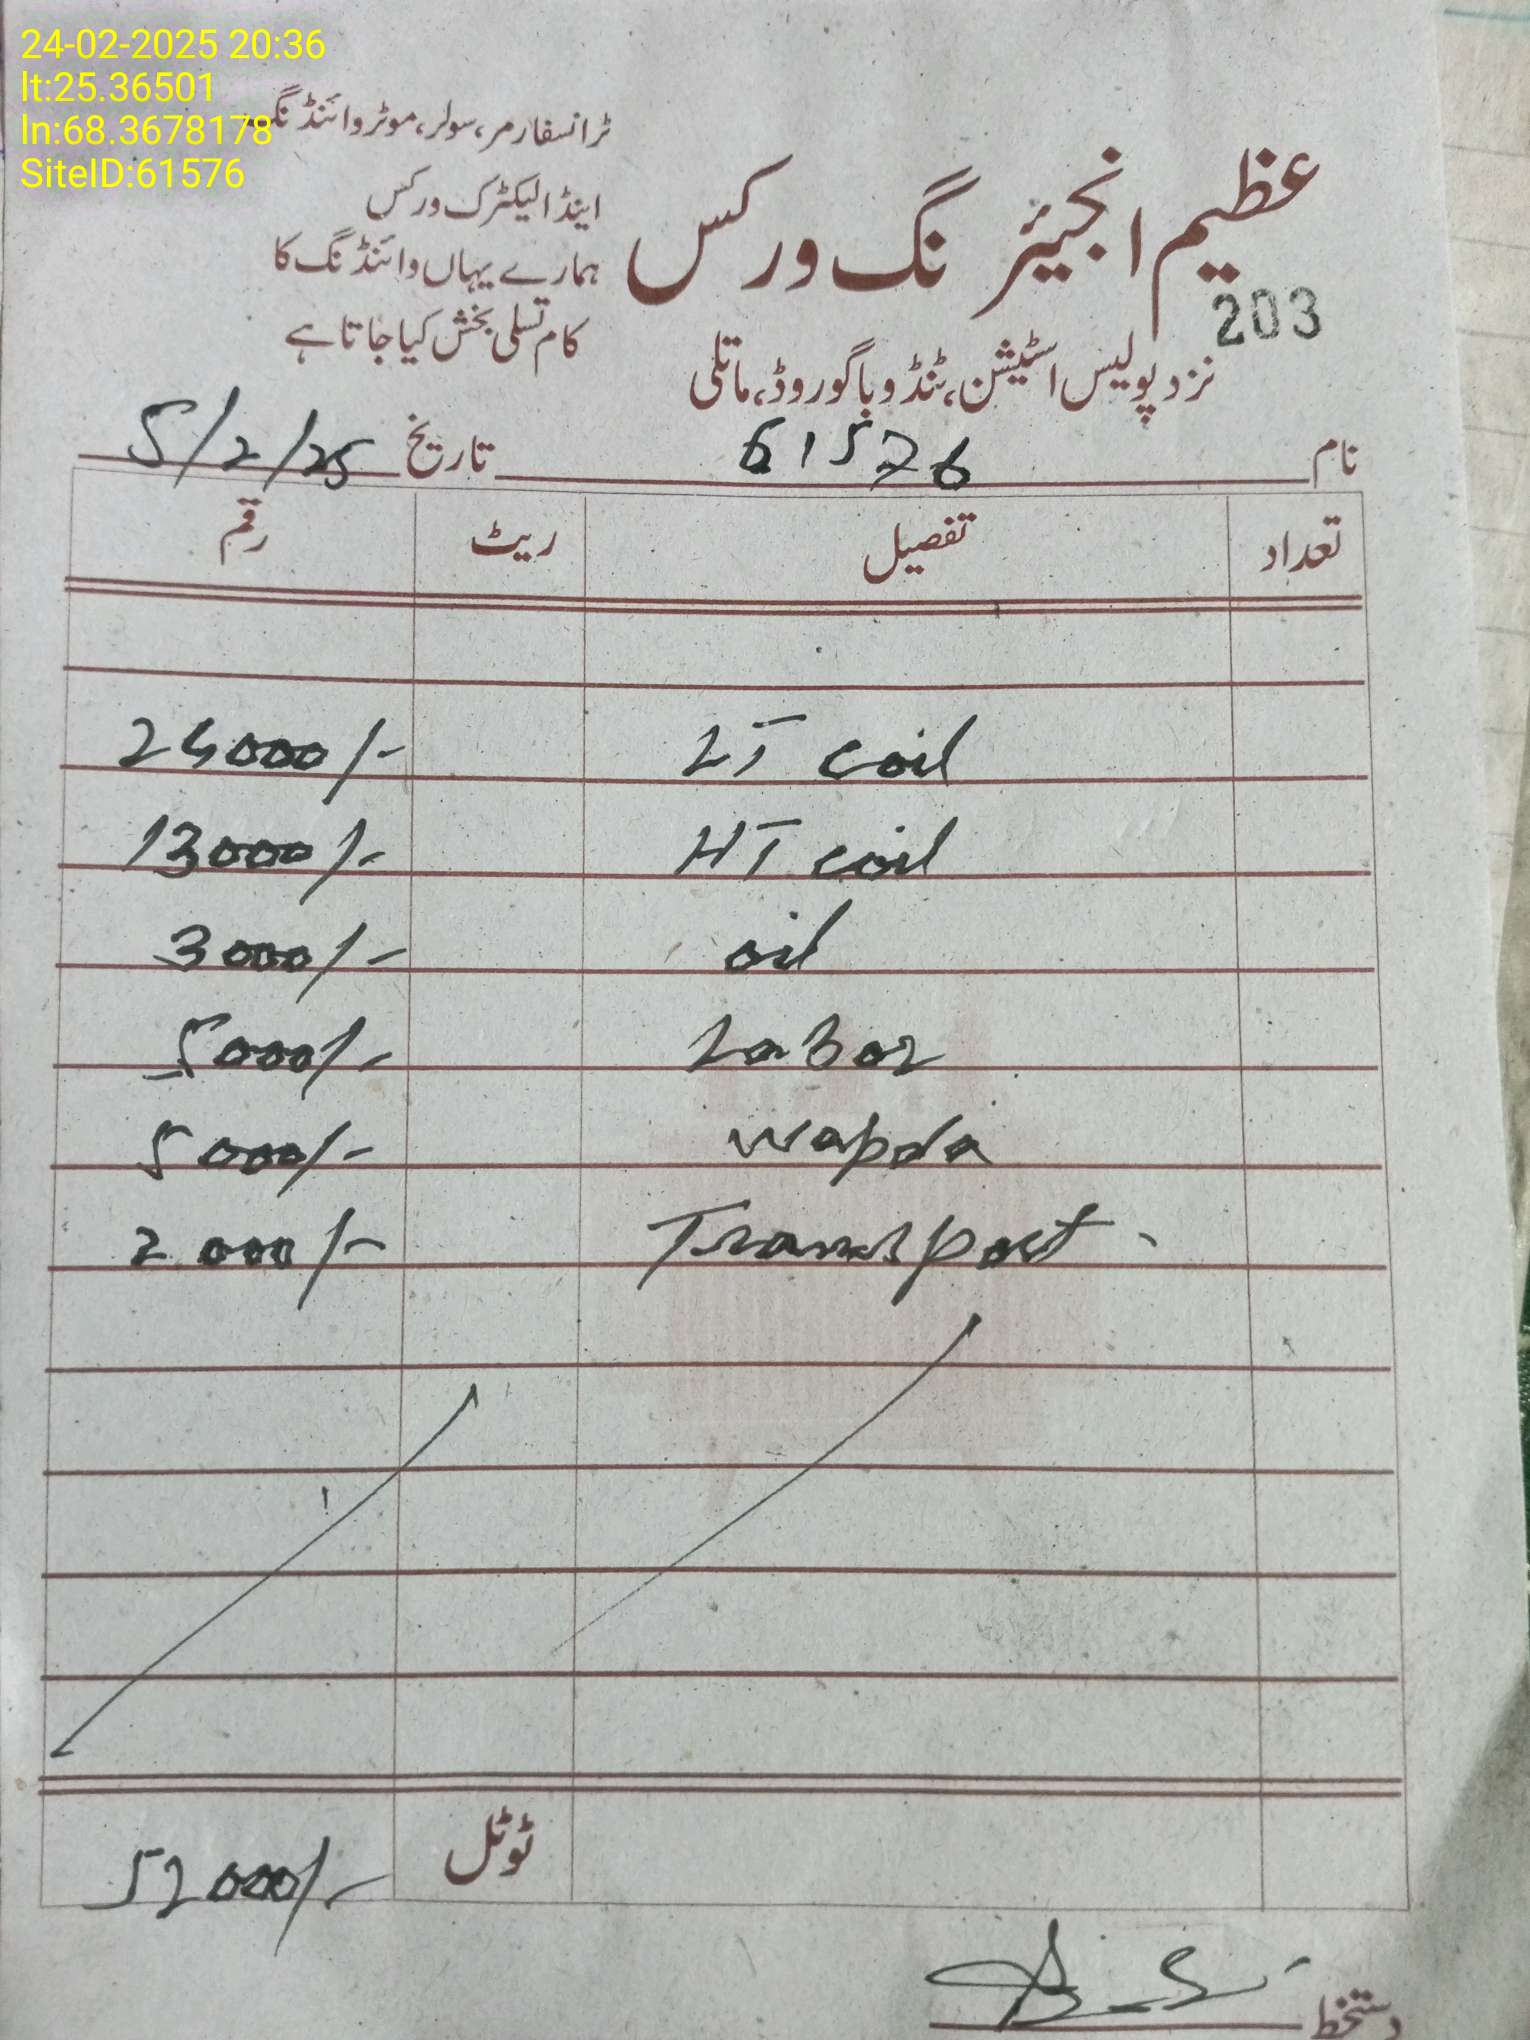 24-02-2025 20:36
lt:25.36501
ln:68.3678178
SiteID:61576
ٹرانسفارمر، سولر، موٹر وائنڈنگ
اینڈ الیکٹرک ورکس
ہمارے یہاں وائنڈنگ کا
کام تسلی بخش کیا جاتا ہے
عظیم انجیئرنگ ورکس
203
نزد پولیس اسٹیشن، ٹنڈو باگو روڈ، ماتلی
نام 61576 تاریخ 5/2/25
تعداد تفصیل ریٹ رقم
LT coil 24000/-
HT coil 13000/-
oil 3000/-
Labor 5000/-
wapda 5000/-
Transport 2000/-
ٹوٹل 52000/-
دستخط